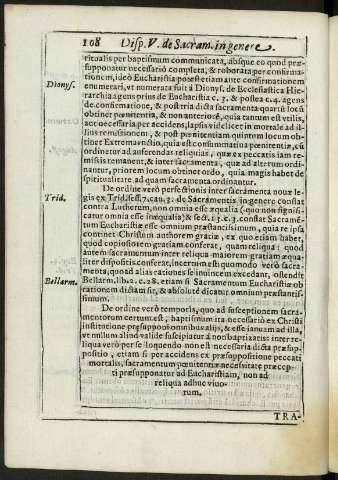 108 Disp. V. de Sacram. in genere.
ritualis per baptismum communicata, absque eo quod præ-
supponatur necessariò completa, & roborata per confirma-
tionem, ideò Eucharistia potest etiam ante confirmationem
Dionys. enumerari, vt numerata fuit à Dionys. de Ecclesiastica Hie-
rarchia agens prius de Eucharistia c. 3. & postea c. 4. agens
de confirmatione, & post tria dicta sacramenta quartū locū
obtinet pœnitentia, & non anteriorē, quia tantum est vtilis,
aut necessaria per accidens, lapsis videlicet in mortale ad il-
lius remissionem, & post pœnitentiam quintum locum ob-
tinet Extremavnctio, quia est consummatiua pœnitentiæ, cū
ordinetur ad auferendas reliquias, quæ ex peccatis iam re-
missis remanent, & inter sacramenta, quæ ad alterum ordi-
nantur, priorem locum obtinet ordo, quia magis habet de
spiritualitate ad quam sacramenta ordinantur.
De ordine verò perfectionis inter sacramenta nouæ le-
Trid. gis ex Trid. sess. 7. can. 3. de Sacramentis in genere constat
contra Lutherum, non omnia esse æqualia (quo non signifi-
catur omnia esse inæqualia) & sess. 13. c. 3. constat Sacramē-
tum Eucharistiæ esse omnium præstantissimum, quia re ipsa
continet Christum authorem gratiæ, ex quo etiam habet,
quod copiosiorem gratiam conferat, quam reliqua: quod
autem sacramentum inter reliqua maiorem gratiam æqua-
liter dispositis conferat, incertum est: quomodo verò sacra-
menta, quoad alias rationes se inuicem excedant, ostendit
Bellarm. Bellarm. lib. 2. c. 28. etiam si Sacramentum Eucharistiæ ob
rationem dictam sit, & absolutè dicatur omnium præstantis-
simum.
De ordine verò temporis, quo ad susceptionem sacra-
mentorum certum est, baptismum ita necessariò ex Christi
institutione præsupponi omnibus alijs, & esse ianuam ad illa,
vt nullum aliud valide suscipiatur à non baptizatis: inter re-
liqua verò per se loquendo non est necessaria dicta præsup-
positio, etiam si per accidens ex præsuppositione peccati
mortalis, sacramentum pœnitentiæ necessitate præcep-
ti præsupponatur ad Eucharistiam, non ad
reliqua adhuc viuo-
rum.
TRA-